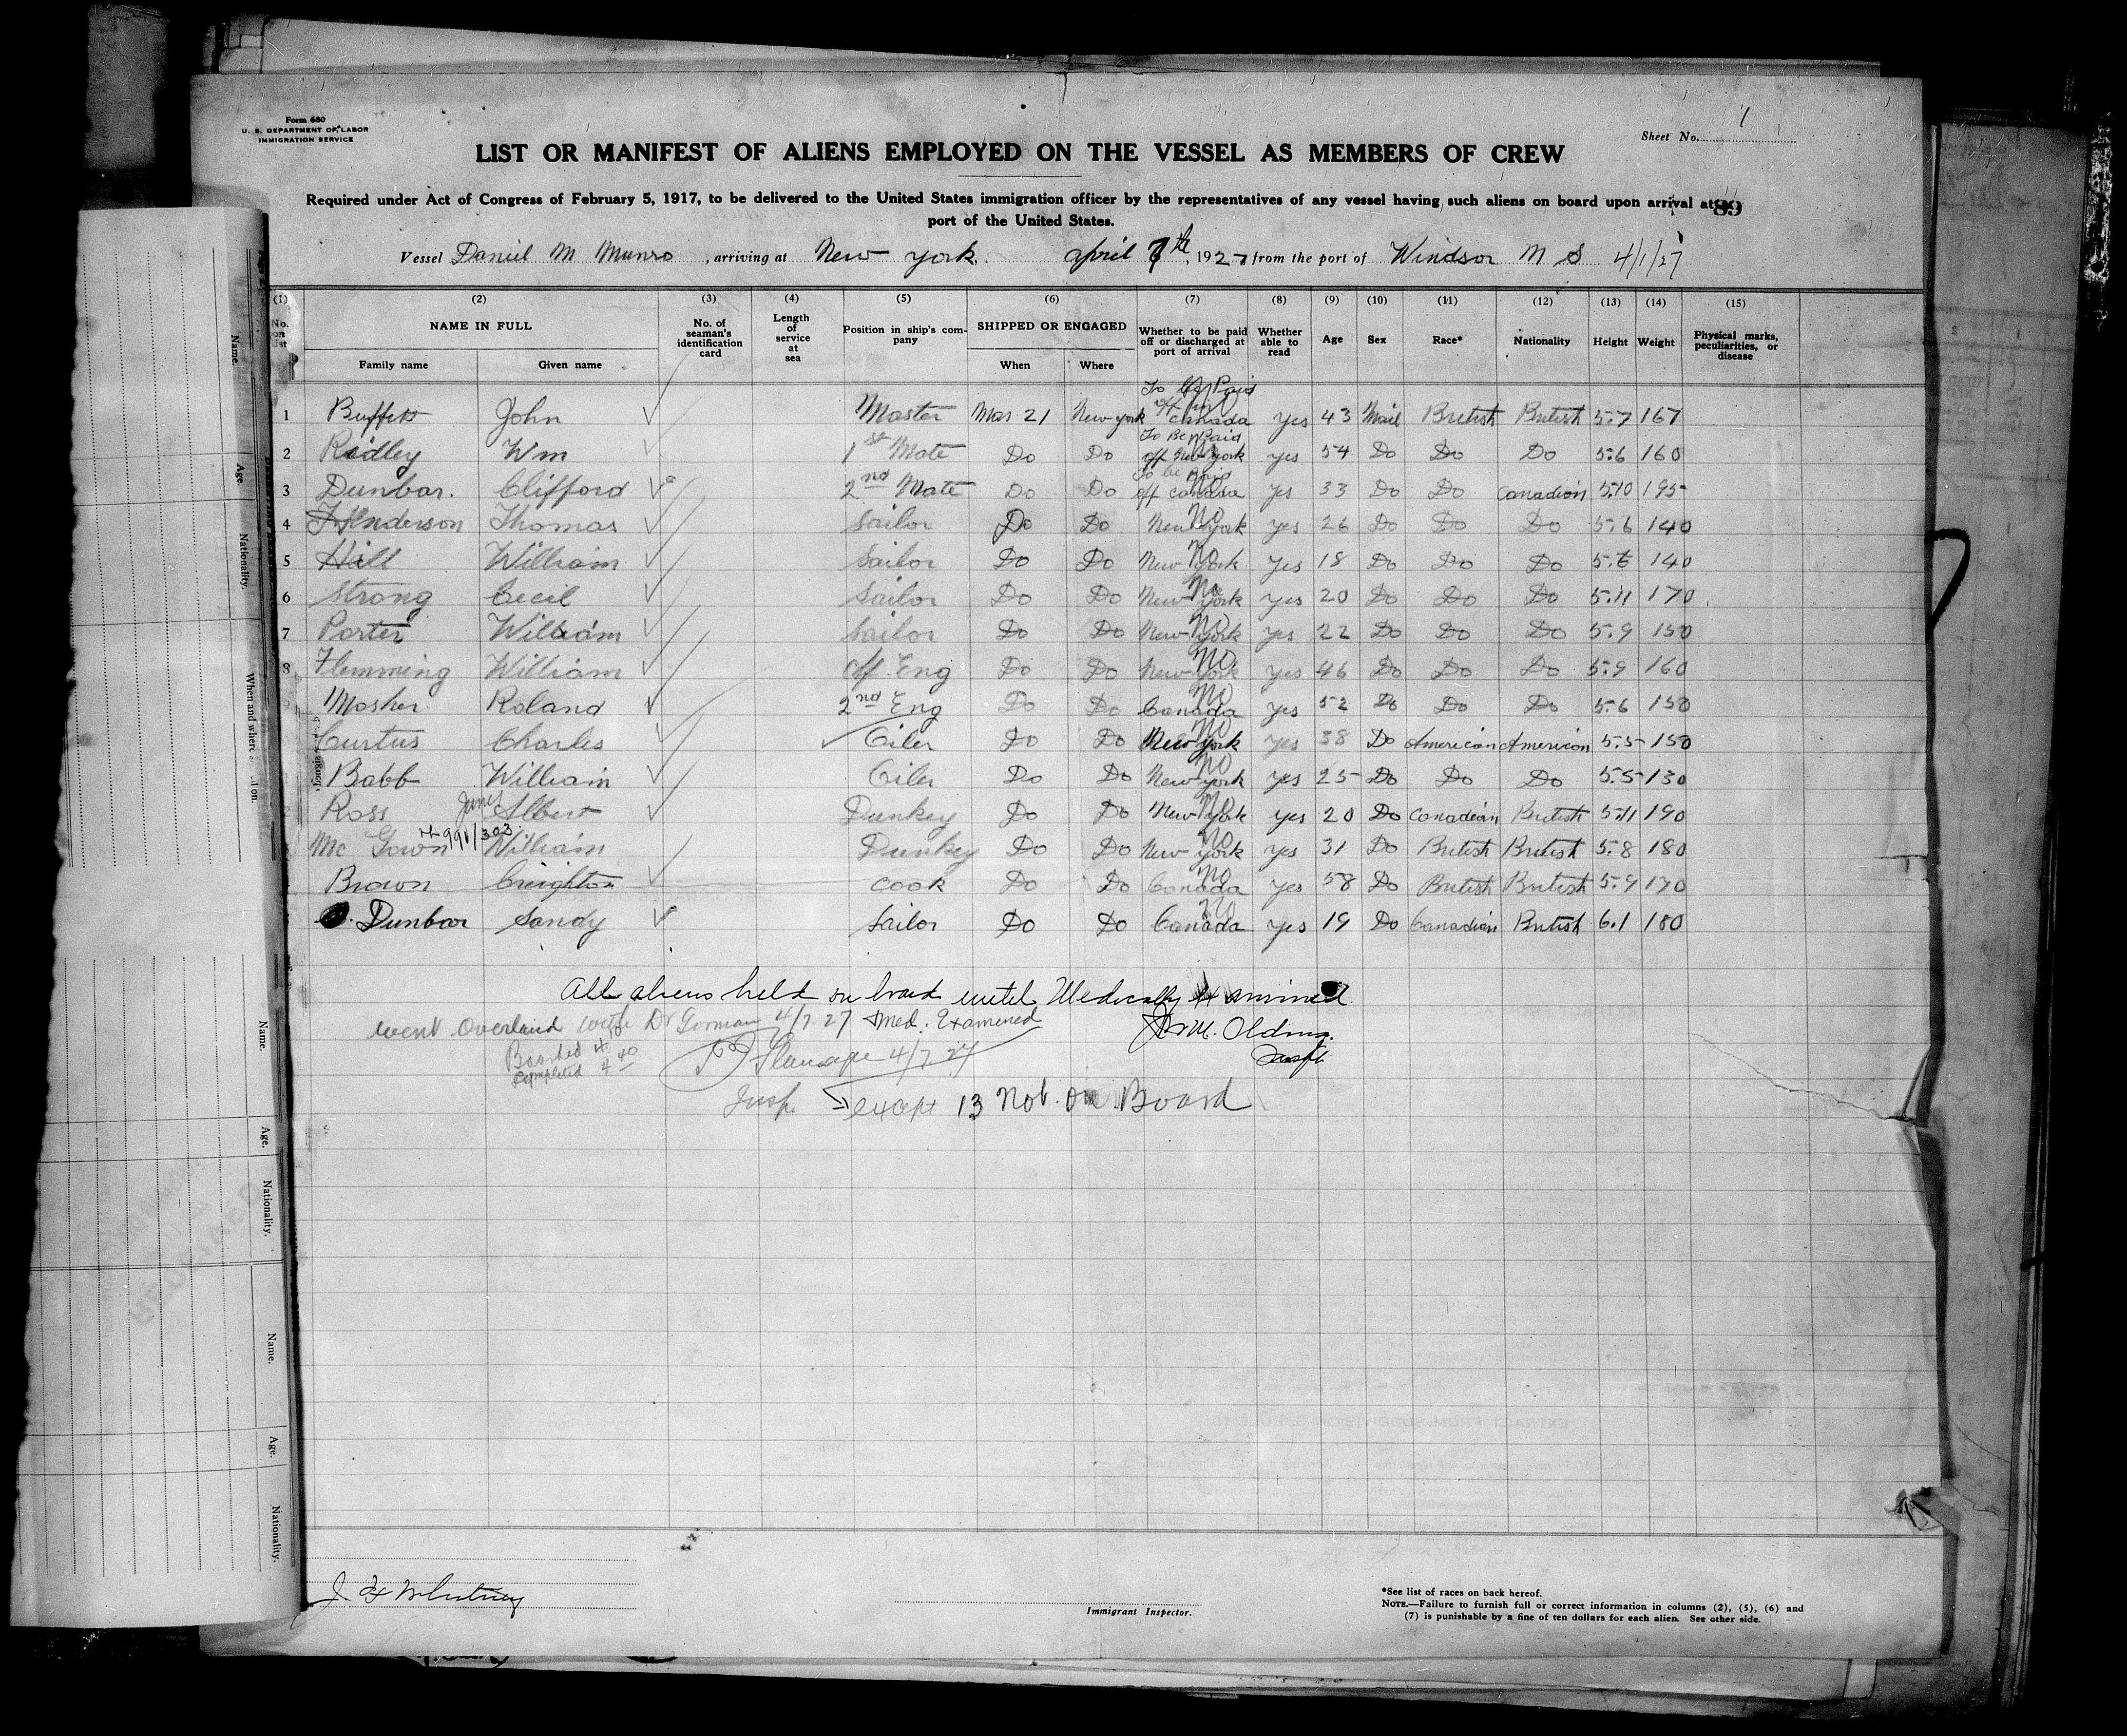 Form 680
U. S. DEPARTMENT OF LABOR
IMMIGRATION SERVICE
Sheet No. 1
LIST OR MANIFEST OF ALIENS EMPLOYED ON THE VESSEL AS MEMBERS OF CREW
Required under Act of Congress of February 5, 1917, to be delivered to the United States immigration officer by the representatives of any vessel having such aliens on board upon arrival at
89
port of the United States.
Vessel Daniel M Munro, arriving at New York. April 7th, 1927 from the port of Windsor N S 4/1/27
(1) (2) (3) (4) (5) (6) (7) (8) (9) (10) (11) (12) (13) (14) (15)
No. on list NAME IN FULL Family name Given name No. of seaman's identification card Length of service at sea Position in ship's company SHIPPED OR ENGAGED When Where Whether to be paid off or discharged at port of arrival Whether able to read Age Sex Race* Nationality Height Weight Physical marks, peculiarities, or disease
1 Buffett John Master Mar 21 New York To be Paid off in Canada Yes 43 Mail British British 5.7 167
2 Ridley Wm 1st Mate Do Do To Be Paid off New York yes 54 Do Do Do 5.6 160
3 Dunbar. Clifford 2nd Mate Do Do To be Paid off Canada yes 33 Do Do Canadian 5.10 195
4 Henderson Thomas Sailor Do Do New York No yes 26 Do Do Do 5.6 140
5 Hill William Sailor Do Do New York No Yes 18 Do Do Do 5.6 140
6 Strong Cecil Sailor Do Do New York No yes 20 Do Do Do 5.11 170
7 Porter William Sailor Do Do New York No yes 22 Do Do Do 5.9 150
8 Flemming William Cf Eng Do Do New York No yes 46 Do Do Do 5.9 160
Mosher Roland 2nd Eng Do Do Canada No yes 52 Do Do Do 5.6 150
Curtus Charles Oiler Do Do New York No yes 38 Do American American 5.5 150
Babb William Oiler Do Do New York No yes 25 Do Do Do 5.5 130
Ross James Albert Dunkey Do Do New York No yes 20 Do Canadian British 5.11 190
991/303
Mc Gown William Dunkey Do Do New York No yes 31 Do British British 5.8 180
Brown Creighton Cook Do Do Canada No yes 58 Do British British 5.9 170
Dunbar Sandy Sailor Do Do Canada yes 19 Do Canadian British 6.1 180
All aliens held on board until Medically Examined
went overland with Dr Gorman 4/7.27 Med. Examined
J. M. Olding.
Insp
Boarded 4
Completed 4 40
4/7 27
Insp. except 13 Not On Board
J F Whitney
Immigrant Inspector.
*See list of races on back hereof.
NOTE.—Failure to furnish full or correct information in columns (2), (5), (6) and
(7) is punishable by a fine of ten dollars for each alien. See other side.
Name.
Age.
Nationality.
When and where
Name.
Age.
Nationality.
Name.
Age.
Nationality.